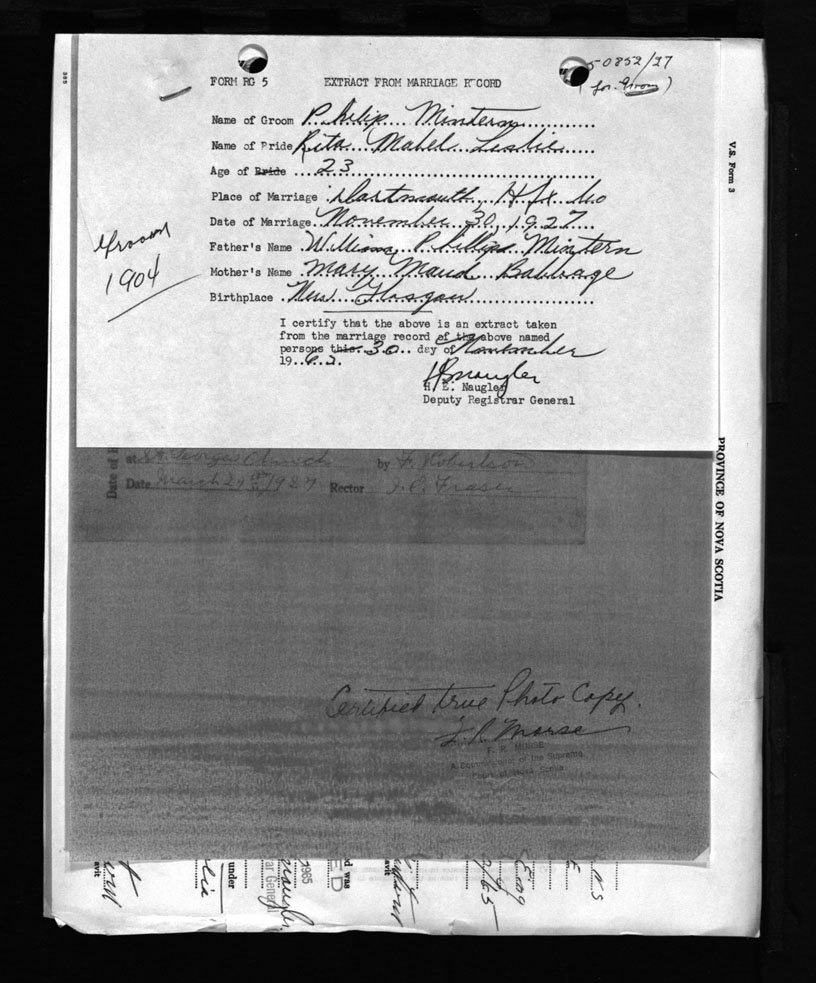 50852/27
FORM RG 5 EXTRACT FROM MARRIAGE RECORD
(for Groom)
Name of Groom Philip Mintern
Name of Bride Rita Mabel Leslie
Age of Bride 23
Place of Marriage Dartmouth, Hfx. Co
Date of Marriage November 30, 1927
Father's Name William Phillips Mintern
Mother's Name Mary Maud Babbage
Birthplace New Glasgow
Groom
1904
I certify that the above is an extract taken
from the marriage record of the above named
persons this 30 day of November
19
H. E. Naugler
Deputy Registrar General
V.S. Form 3
PROVINCE OF NOVA SCOTIA
at St. Georges Church by F. Robertson
Date March 29th 1927 Rector J.P. Fraser
Date of
Certified true Photo Copy.
L R Morse
of the Supreme
under
1965
ar General
d was
ED
avit
N S